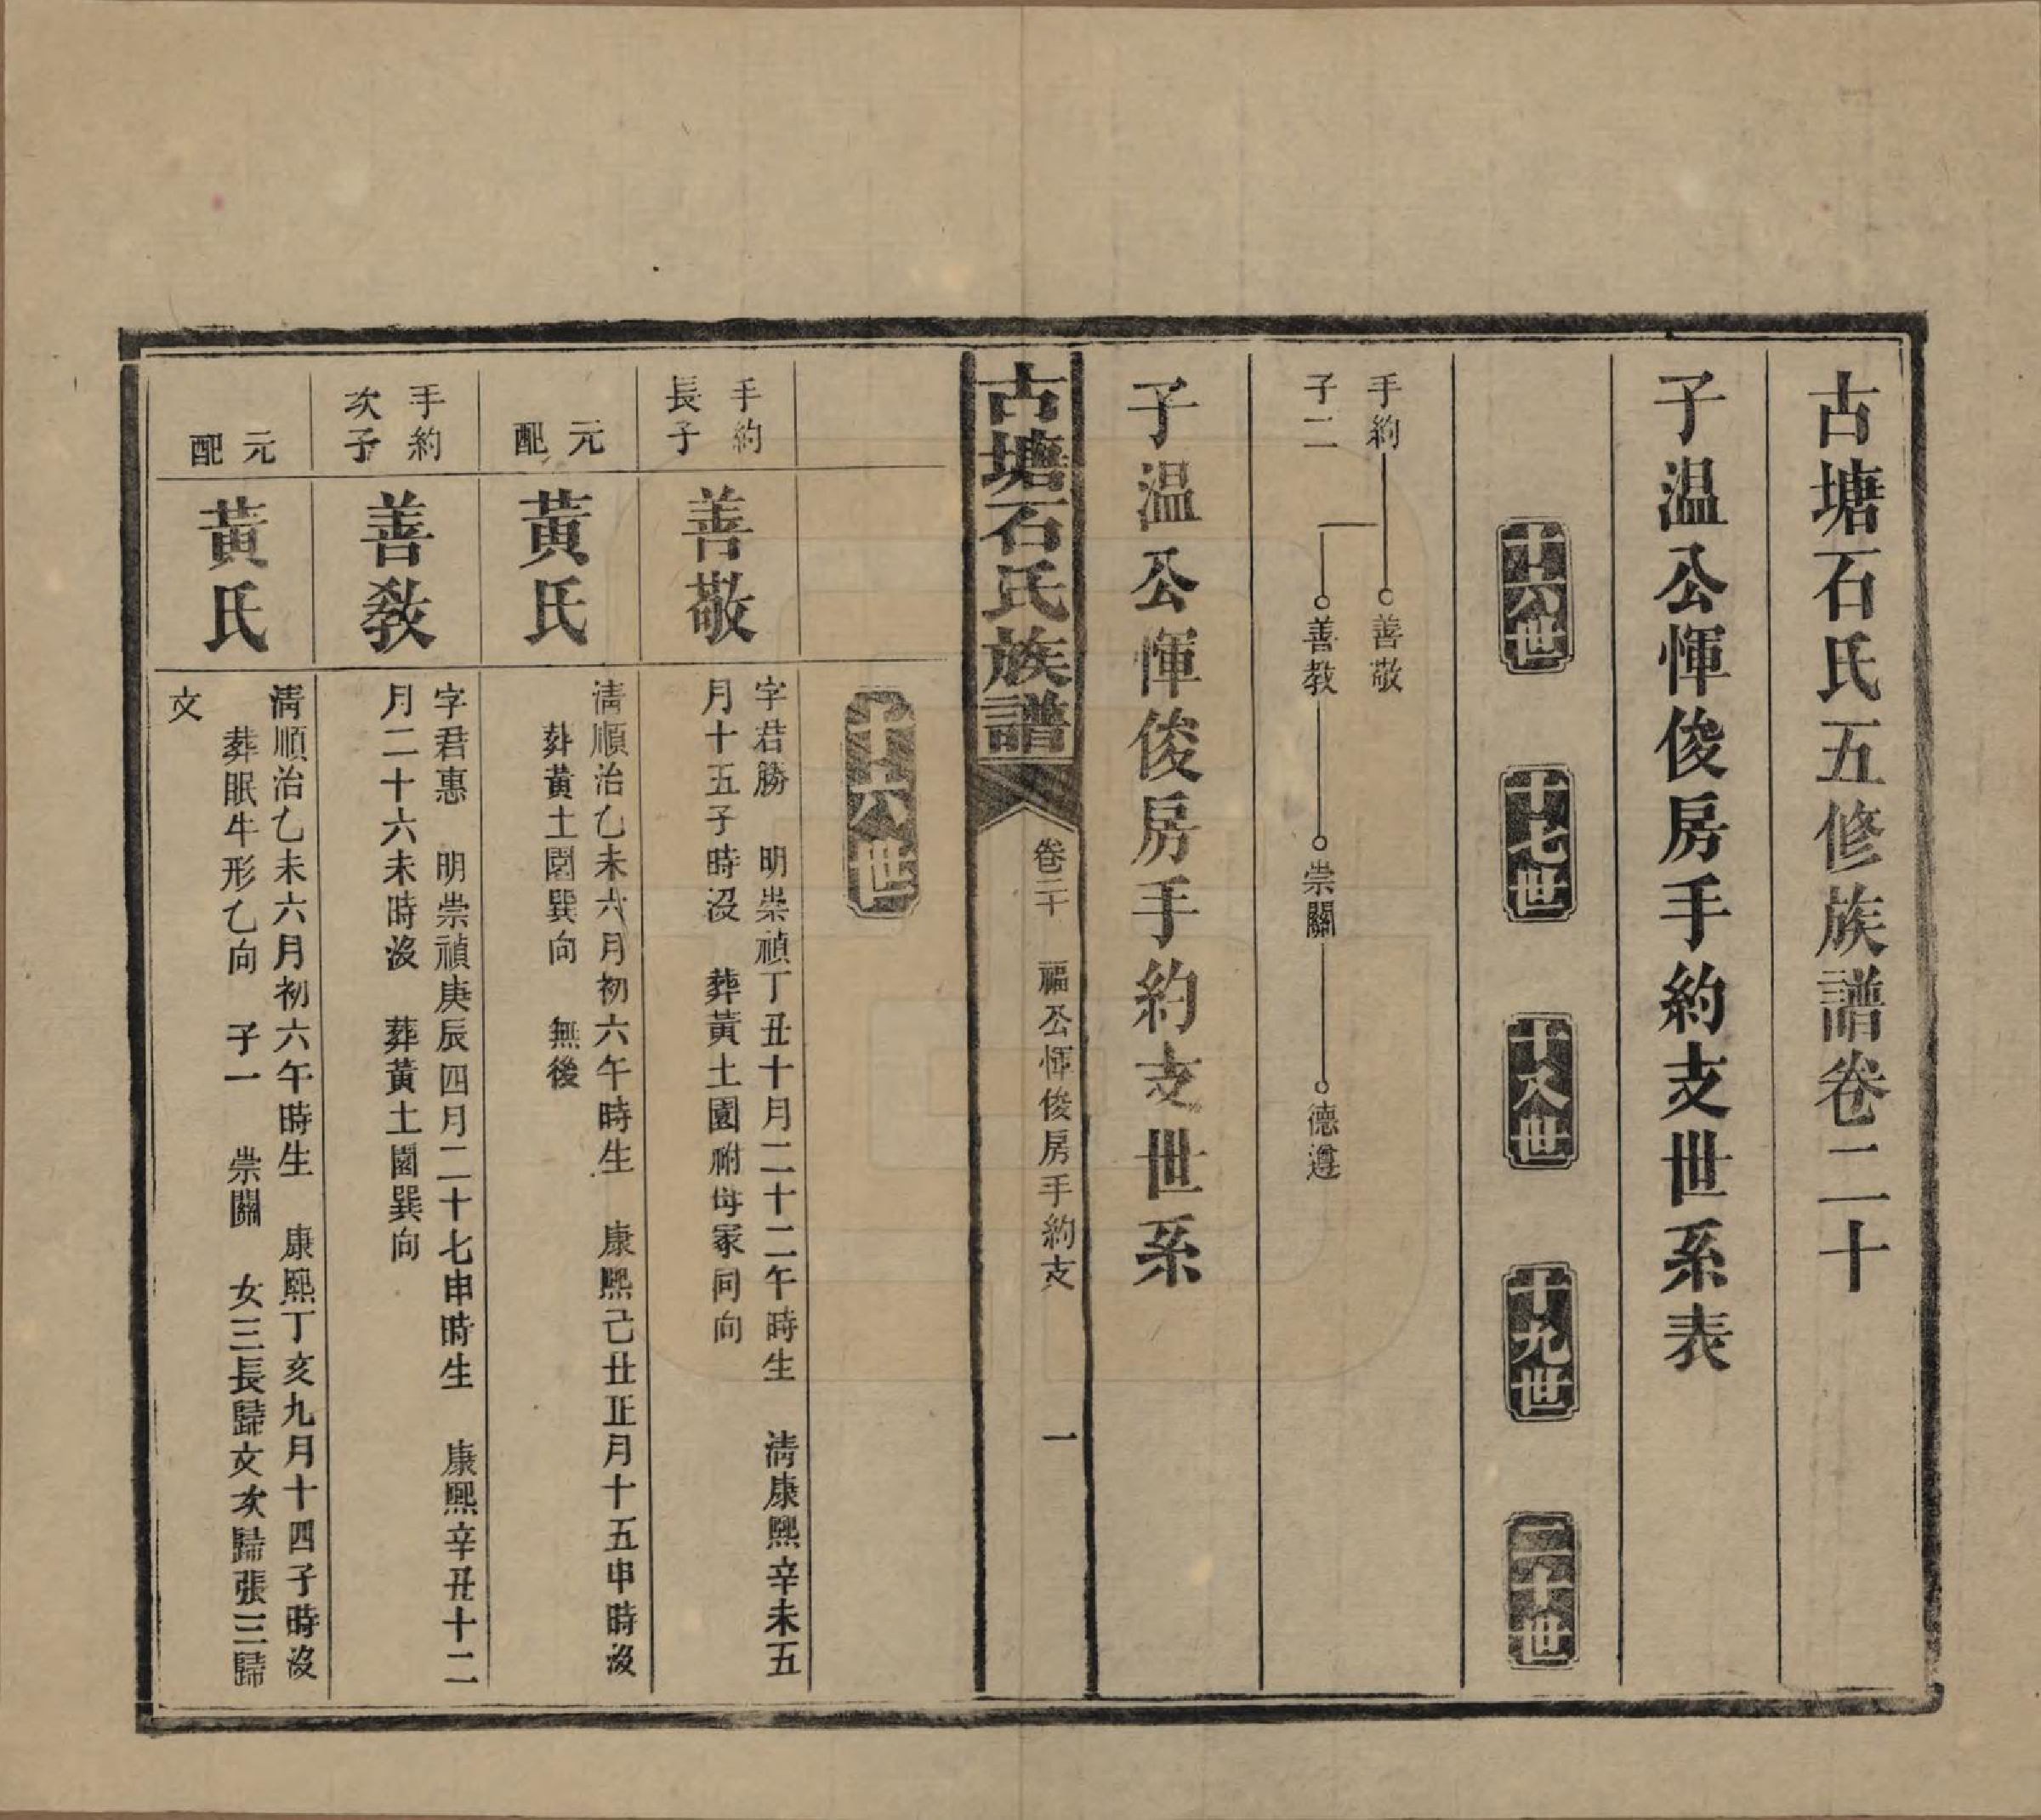 古塘石氏五修族譜卷二十
子温公惲俊房手約支世系表
十六世
十七世
十八世
十九世
二十世
手約
子二
善敬
善教
崇關
德遵
子温公惲俊房手約支世系
古塘石氏族譜
卷二十 福公惲俊房手約支 一
十六世
手約
長子
善敬
字君勝 明崇禎丁丑十月二十二午時生 清康熙辛未五
月十五子時沒 葬黃土園祔母冢同向
元
配
黃氏
清順治乙未六月初六午時生 康熙己丑正月十五申時沒
葬黃土園巽向 無後
手約
次子
善教
字君惠 明崇禎庚辰四月二十七申時生 康熙辛丑十二
月二十六未時沒 葬黃土園巽向
元
配
黃氏
清順治乙未六月初六午時生 康熙丁亥九月十四子時沒
葬眠牛形乙向 子一 崇關 女三長歸文次歸張三歸
文